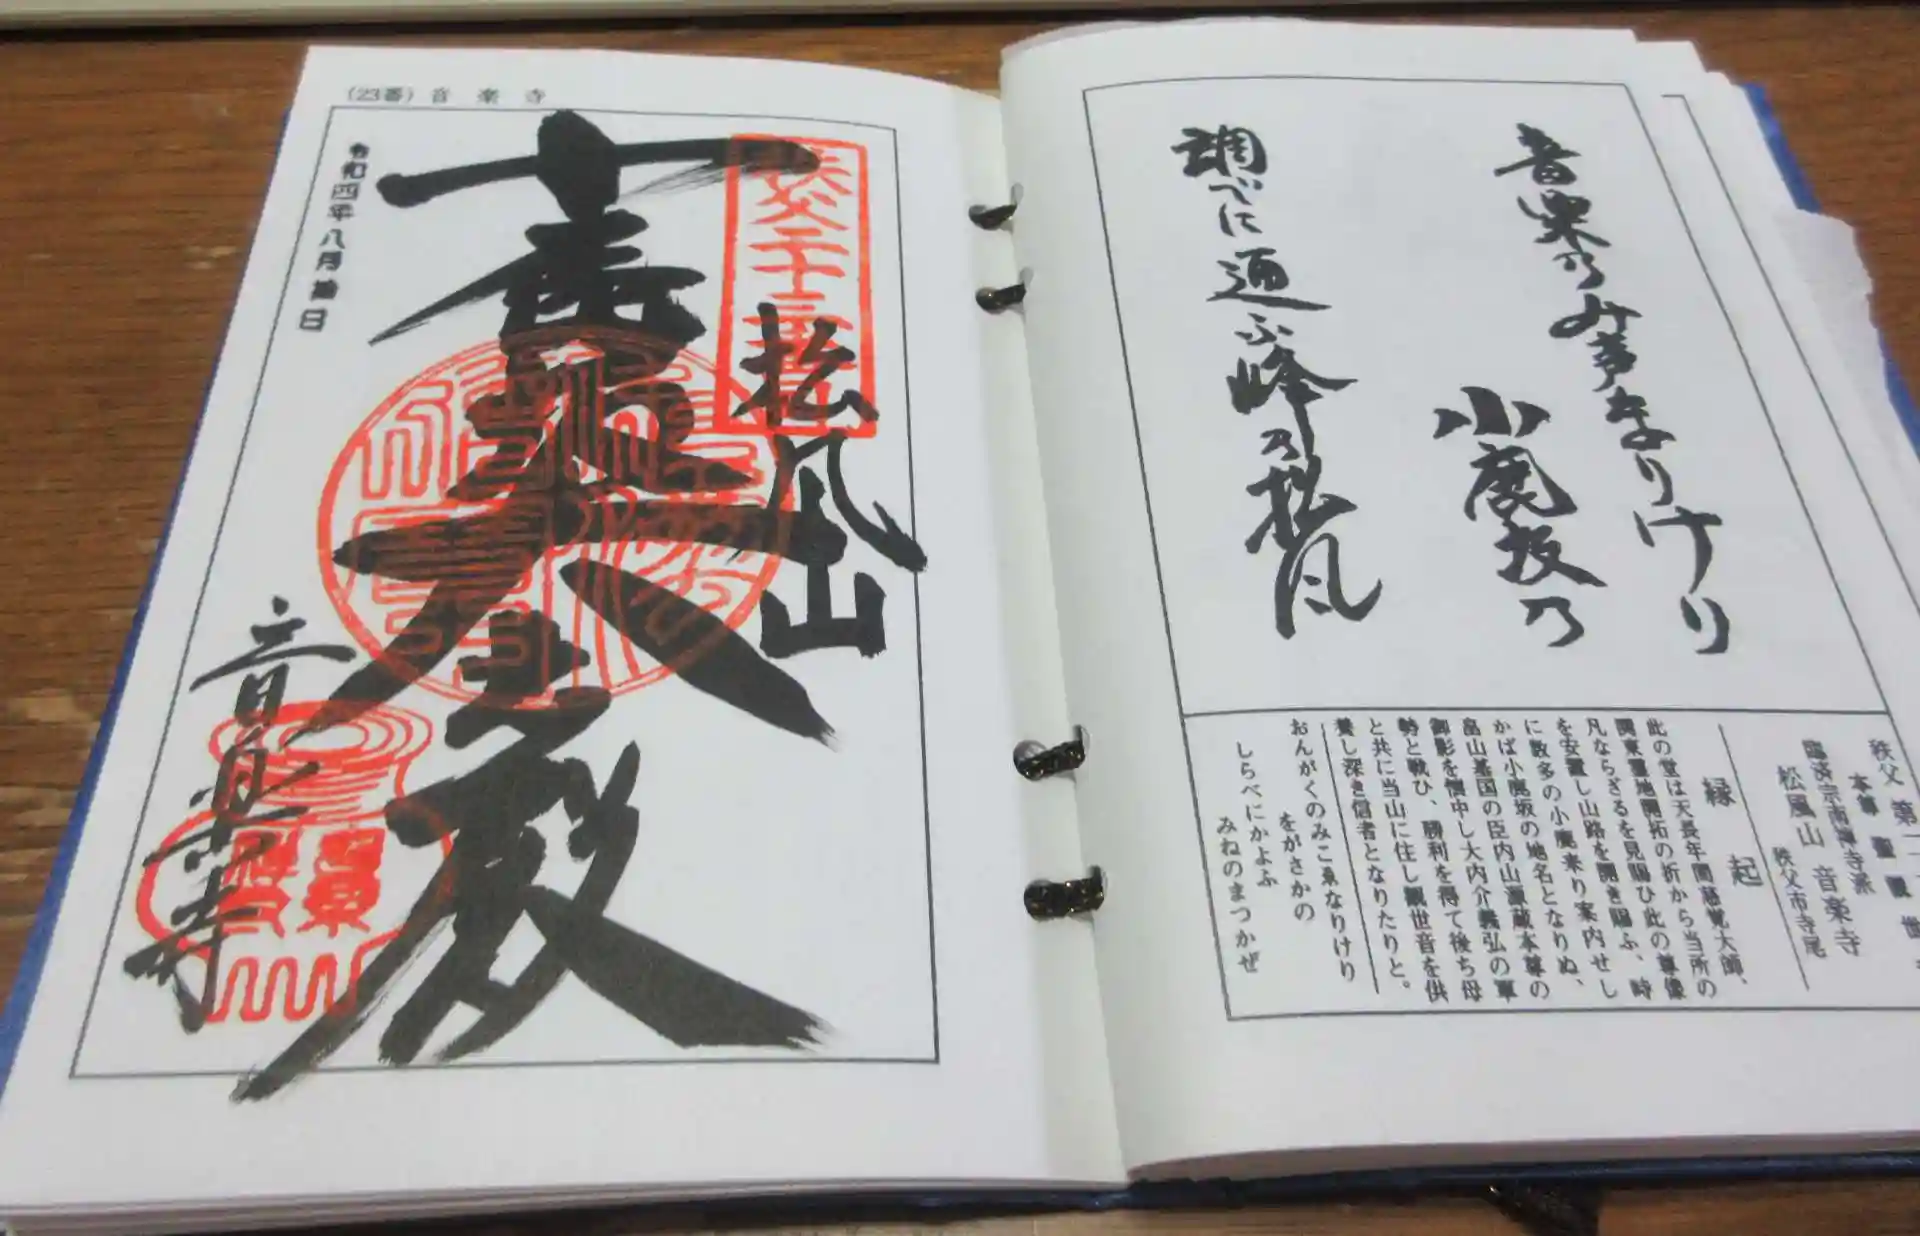 音楽のみ声なりけり
小鹿坂の
調べに通ふ峰の松風
秩父第二
本尊 聖観世
臨済宗南禅寺派
松風山 音楽寺
秩父市寺尾
縁起
此の堂は天長年間慈覚大師、
関東霊地開拓の折から当所の
凡ならざるを見賜ひ此の尊像
を安置し山路を開き賜ふ、時
に数多の小鹿来り案内せし
かば小鹿坂の地名となりぬ、
畠山基国の臣内山源蔵本尊の
御影を懐中し大内介義弘の軍
勢と戦ひ、勝利を得て後ち母
と共に当山に住し観世音を供
養し深き信者となりたりと。
おんがくのみこゑなりけり
をがさかの
しらべにかよふ
みねのまつかぜ
(23番) 音楽寺
秩父二十三番
松風山
音楽寺
令和四年八月拾日